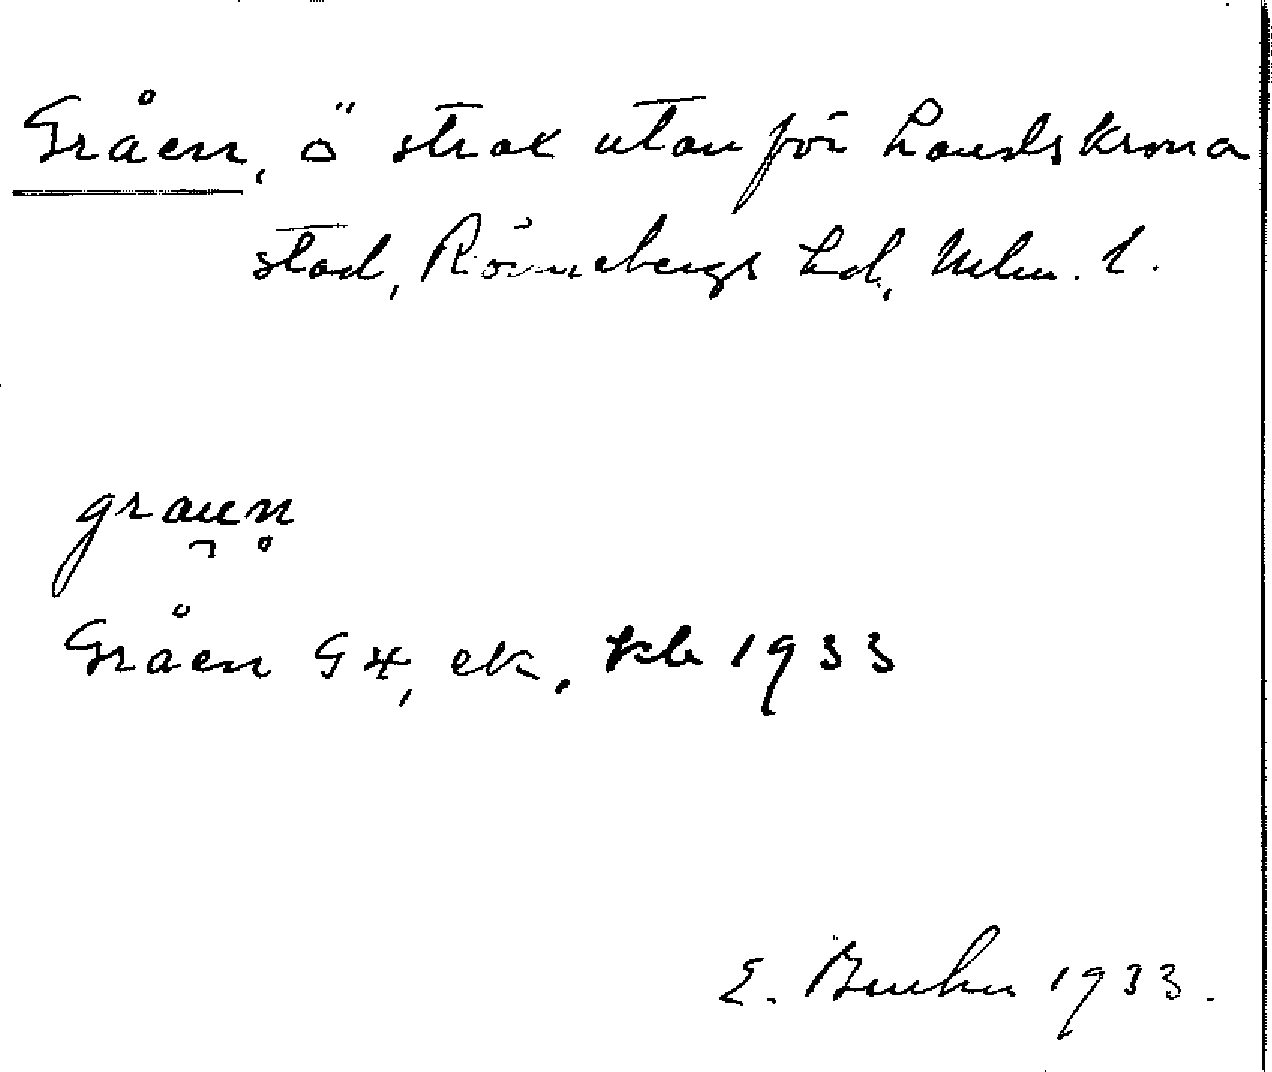 Gråen, ö strax utanför Landskrona
stad, Rönnebergs hd, Mlm. l.
graun
Gråen G4, ek.
1933
E. 1933.